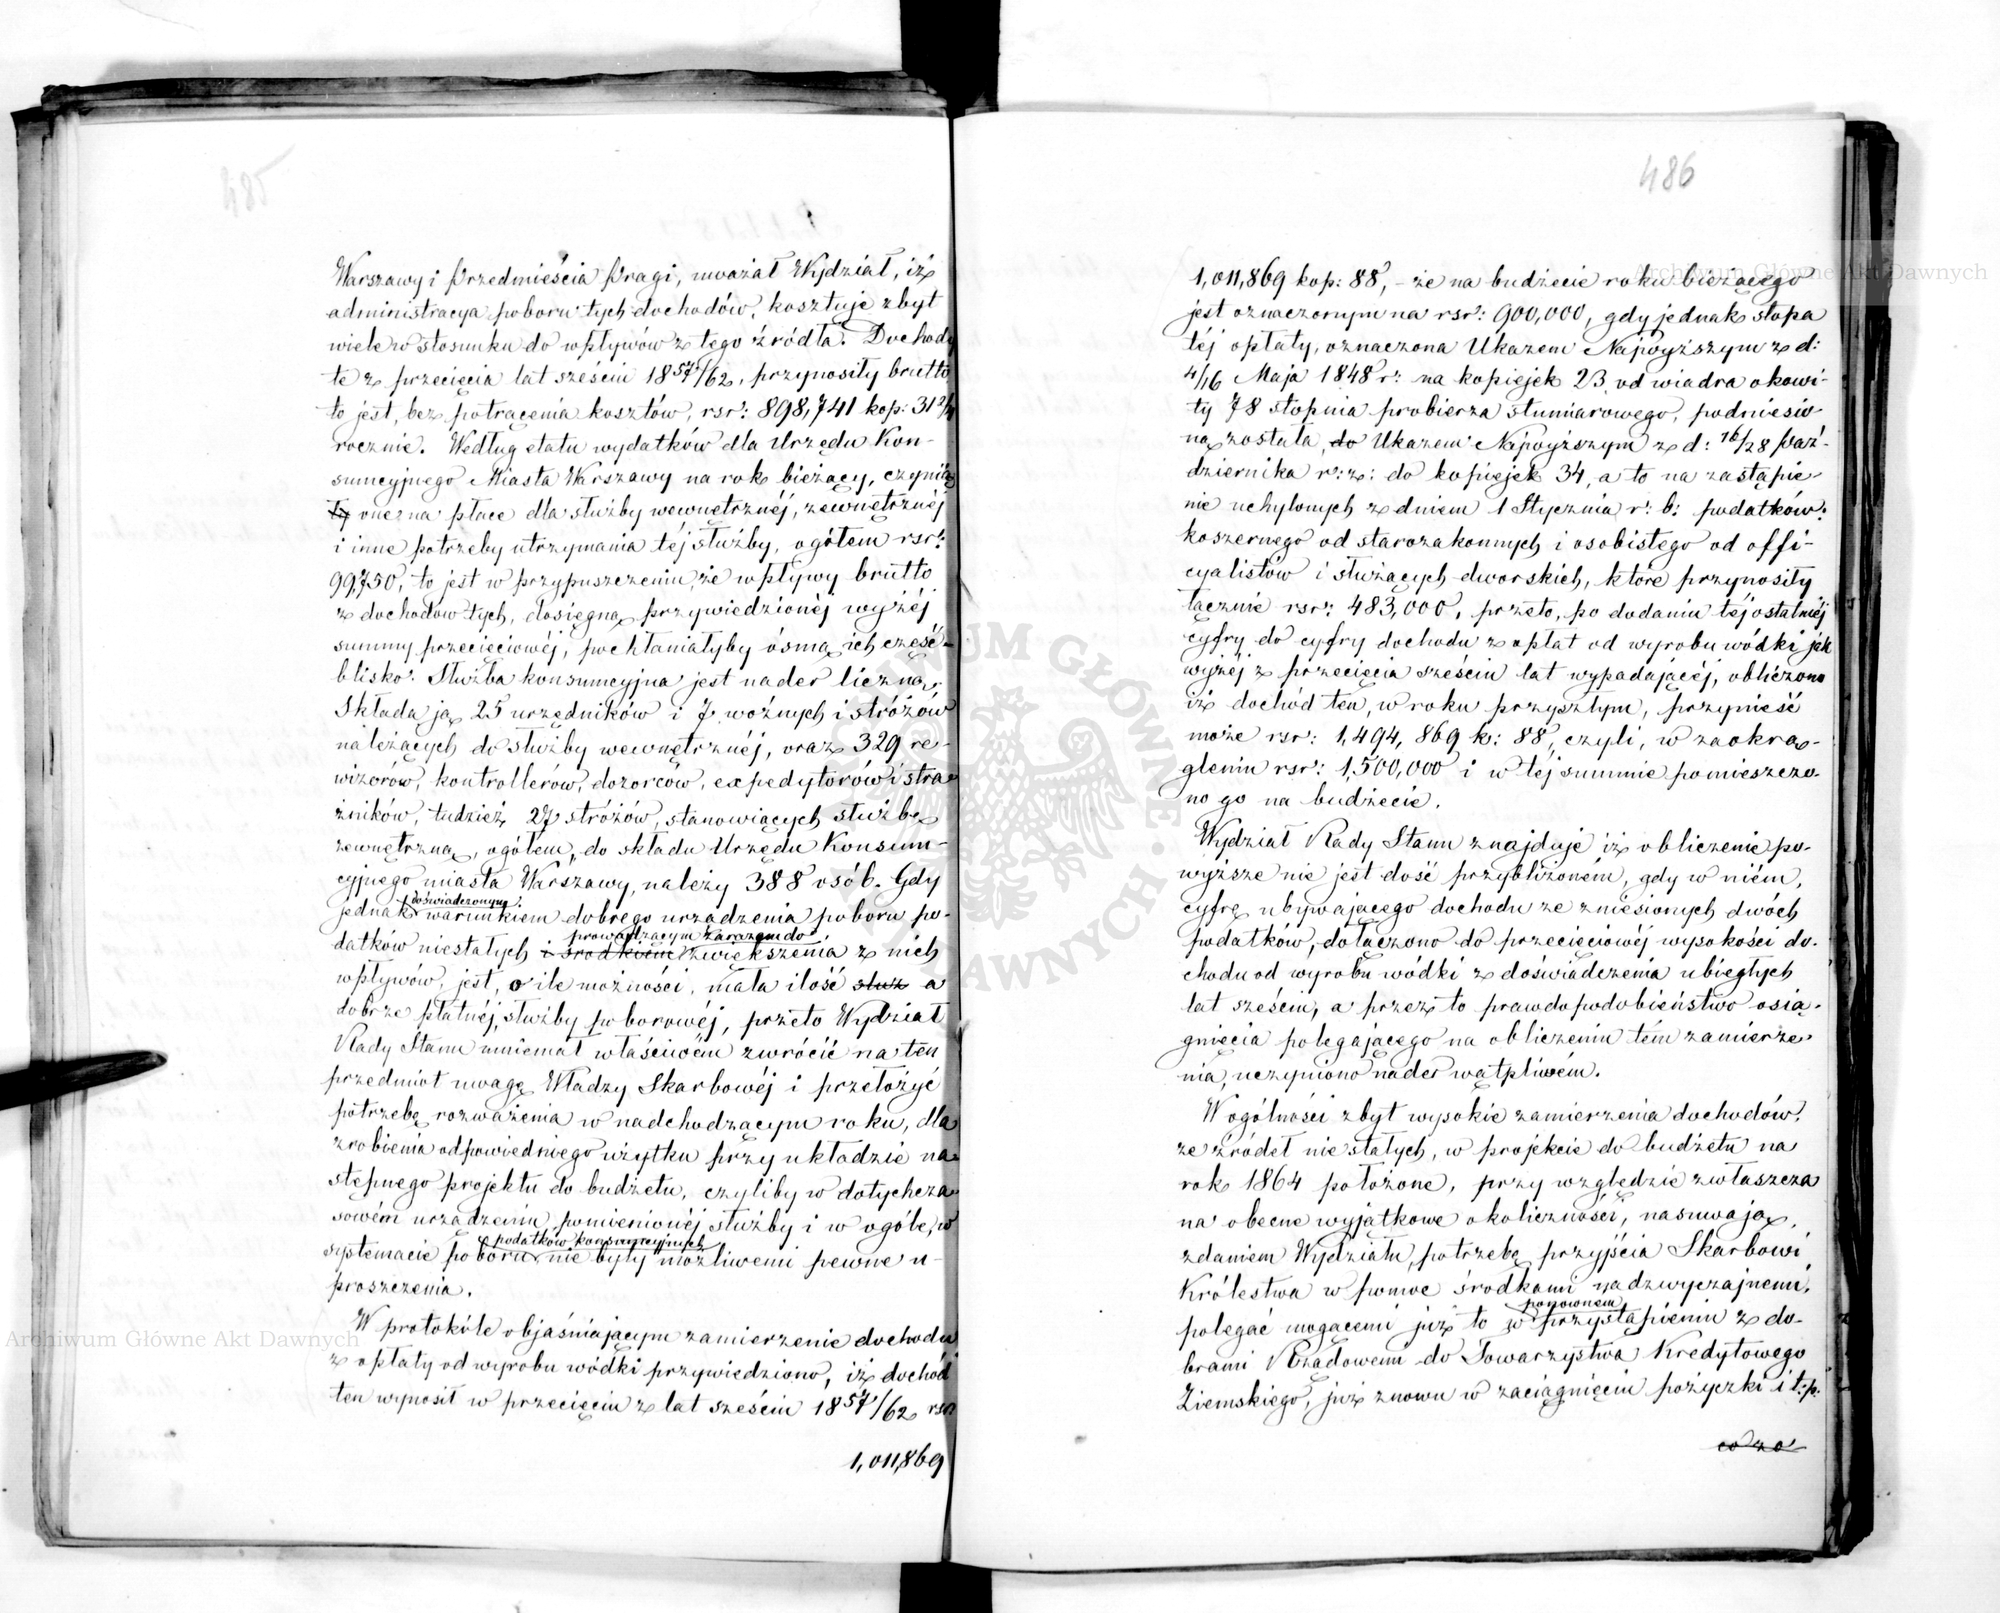 485
Warszawy i Przedmieścia Pragi, uważał Wydział, iż
administracya poboru tych dochodów, kosztuje zbyt
wiele w stosunku do wpływów z tego źródła. Dochody
te z przecięcia lat sześciu 1857/62, przynosiły brutto,
to jest, bez potrącenia kosztów, rsr: 898,741 kop: 31
rocznie. Według etatu wydatków dla Urzędu Kon-
sumcyjnego Miasta Warszawy na rok bieżący, czynią
one na płace dla służby wewnętrznéj, zewnętrznéj
i inne potrzeby utrzymania téj służby, ogółem rsr:
99,750, to jest w przypuszczeniu, że wpływy brutto
z dochodów tych, dosięgną przywiedzionéj wyżéj
summy przecięciowéj, pochłaniałyby ósmą ich część
blisko. Służba konsumcyjna jest nader liczna,
składa ją 25 urzędników i 7 woźnych i stróżów
należących do służby wewnętrznéj, oraz 329 re-
wizorów, kontrollerów, dozorców, expedytorów i stra-
żników, tudzież 27 stróżów, stanowiących służbę
zewnętrzną, ogółem, do składu Urzędu Konsum-
cyjnego miasta Warszawy, należy 388 osób. Gdy
doświadczonym
jednak warunkiem dobrego urządzenia poboru po-
prowadzącym zarazem do
datków niestałych i środkiem zwiększenia z nich
wpływów, jest, o ile możności, mała ilość służ a
dobrze płatnéj, służby poborowéj, przeto Wydział
Rady Stanu mniemał właściwém zwrócić na ten
przedmiot uwagę Władzy Skarbowéj i przełożyć
potrzebę rozważenia w nadchodzącym roku, dla
zrobienia odpowiedniego użytku przy układzie na-
stępnego projektu do budżetu, czyliby w dotychcza-
sowém urządzeniu pomienionéj służby i w ogóle, w
podatków konsumcyjnych
systemacie poboru nie były możliwemi pewne u-
proszczenia.
W protokóle objaśniającym zamierzenie dochodu
z opłaty od wyrobu wódki przywiedziono, iż dochód
ten wynosił w przecięciu z lat sześciu 1857/62 rsr:
1,011,869
486
1,011,869 kop: 88, - że na budżecie roku bieżącego
jest oznaczonym na rsr: 900,000, gdy jednak stopa
téj opłaty, oznaczona Ukazem Najwyższym z d:
4/16 Maja 1848 r: na kopiejek 23 od wiadra okowi-
ty 78 stopnia probierza stumiarowego, podniesio-
ną została, do Ukazem Najwyższym z d: 16/28 Paź-
dziernika r: z: do kopiejek 34, a to na zastąpie-
nie uchylonych z dniem 1 Stycznia r: b: podatków:
koszernego od starozakonnych i osobistego od offi-
cyalistów i służących dworskich, które przynosiły
łącznie rsr: 483,000, przeto, po dodaniu téj ostatniéj
cyfry do cyfry dochodu z opłat od wyrobu wódki jak
wyżéj z przecięcia sześciu lat wypadającéj, obliczono
iż dochód ten, w roku przyszłym, przynieść
może rsr: 1,494,869 k: 88, czyli, w zaokrą-
gleniu rsr: 1,500,000 i w téj summie pomieszczo-
no go na budżecie.
Wydział Rady Stanu znajduje iż obliczenie po-
wyższe nie jest dość przybliżoném, gdy w niém,
cyfrę ubywającego dochodu ze zniesionych dwóch
podatków, dołączono do przecięciowéj wysokości do-
chodu od wyrobu wódki z doświadczenia ubiegłych
lat sześciu, a przez to prawdopodobieństwo osią-
gnięcia polegającego na obliczeniu tém zamierze-
nia, uczyniono nader wątpliwém.
W ogólności zbyt wysokie zamierzenia dochodów,
ze źródeł niestałych, w projekcie do budżetu na
rok 1864 położone, przy względzie zwłaszcza
na obecne wyjątkowe okoliczności, nasuwają,
zdaniem Wydziału, potrzebę przyjścia Skarbowi
Królestwa w pomoc środkami nadzwyczajnemi,
ponownem
polegać mogącemi już to w przystąpieniu z do-
brami Rządowemi do Towarzystwa Kredytowego
Ziemskiego, już znowu w zaciągnięciu pożyczki i t: p:
co za
Archiwum Główne Akt Dawnych
Archiwum Główne Akt Dawnych
ARCHIWUM GŁÓWNE AKT DAWNYCH